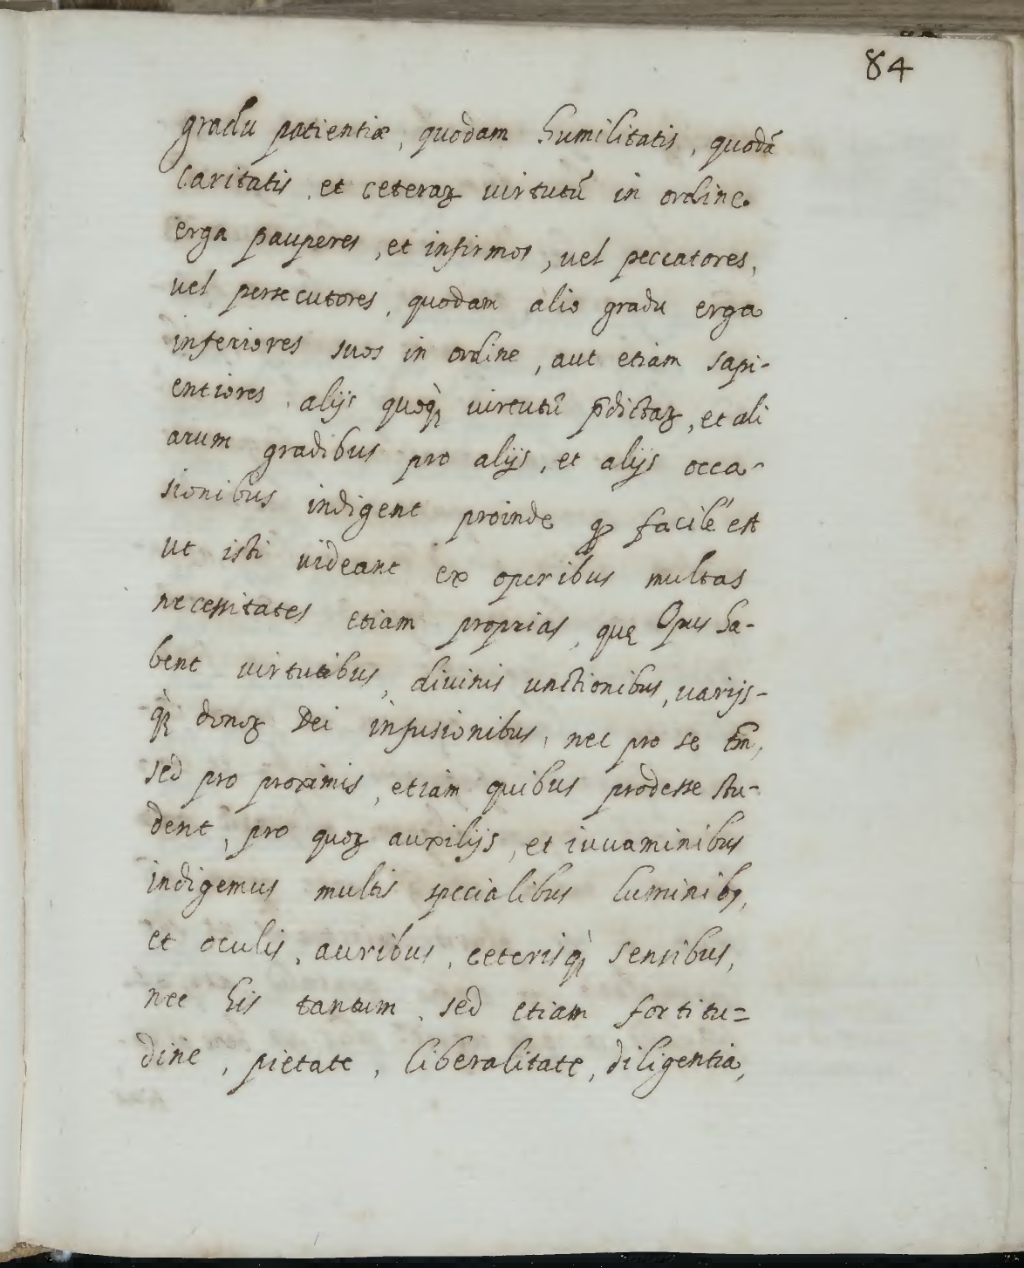 84
gradu patientiæ, quodam humilitatis, quodā
caritatis, et ceteraꝝ virtutū in ordine
erga pauperes, et infirmos, vel peccatores,
vel persecutores, quodam alio gradu erga
inferiores suos in ordine, aut etiam sapi-
entiores, alijs quoq̀ꝫ virtutū p̄dictaꝝ, et ali
arum gradibus pro alijs, et alijs occa-
sionibus indigent proinde facile est
ut isti uideant ex operibus multas
necessitates etiam proprias, quę Opus ha-
bent virtutibus, divinis unctionibus, varijs-
q̀ꝫ donoꝝ Dei infusionibus, nec pro se tm̄,
sed pro proximis, etiam quibus prodesse stu-
dent, pro quoꝝ auxilijs, et iuvaminibus
indigemus multis specialibus luminibꝫ,
et oculis, auribus, ceterisq̀ꝫ sensibus,
nec his tantum, sed etiam fortitu=
dine, pietate, liberalitate, diligentia,